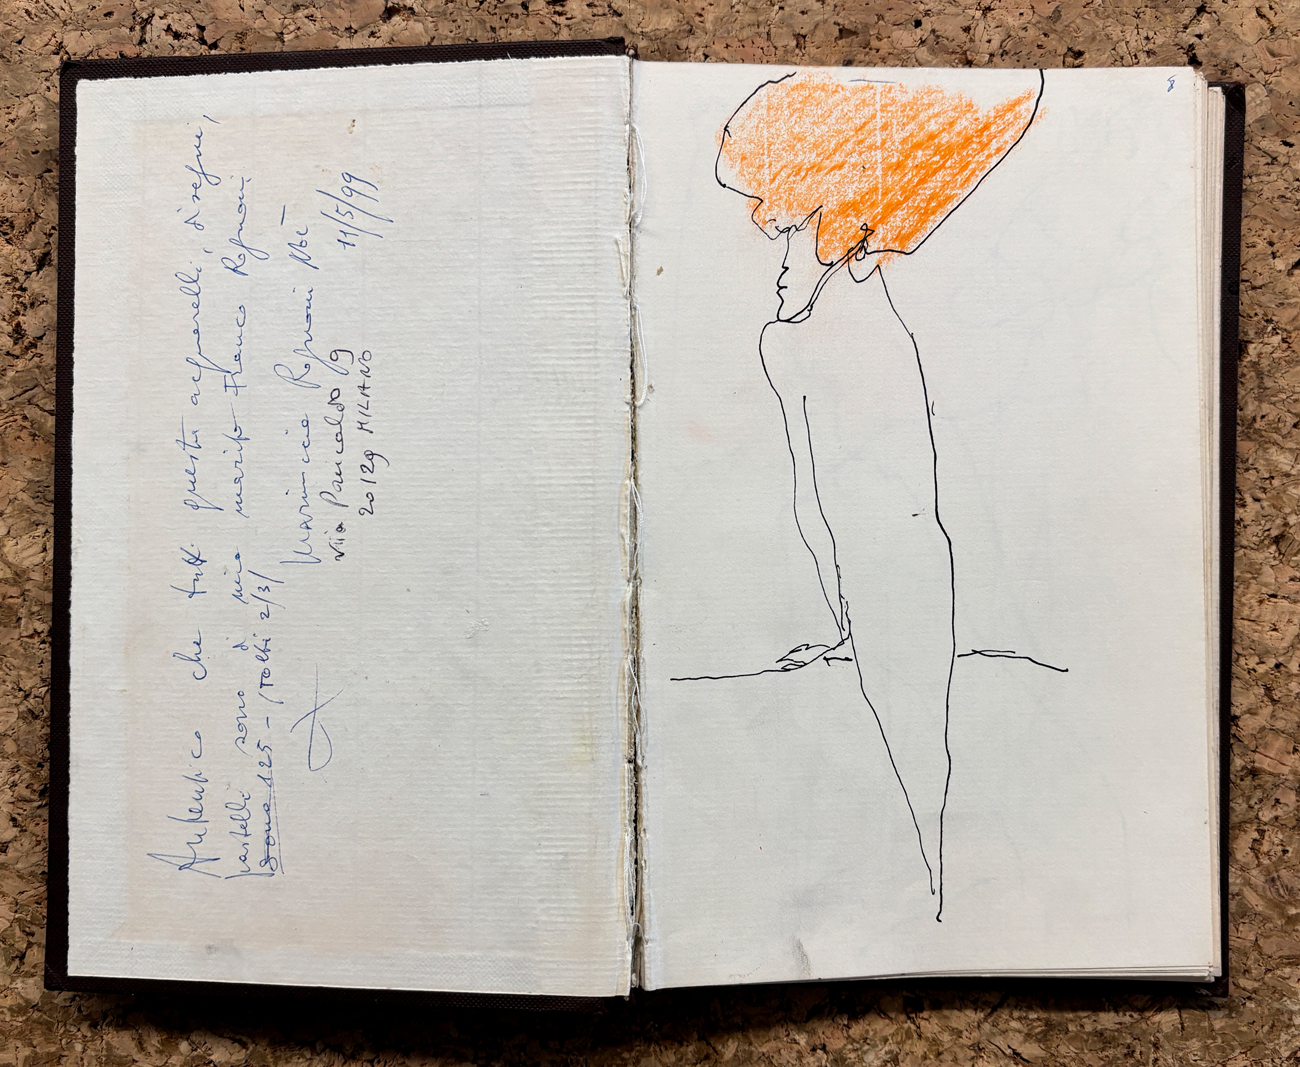 Autentico che tutti questi acquarelli, disegni,
pastelli sono di mio marito Franco Rognoni
Sono 125 - (Tolti 2/3/
Mariuccia Rognoni Noè
Via Pancaldo 9
20129 MILANO
11/5/99
8